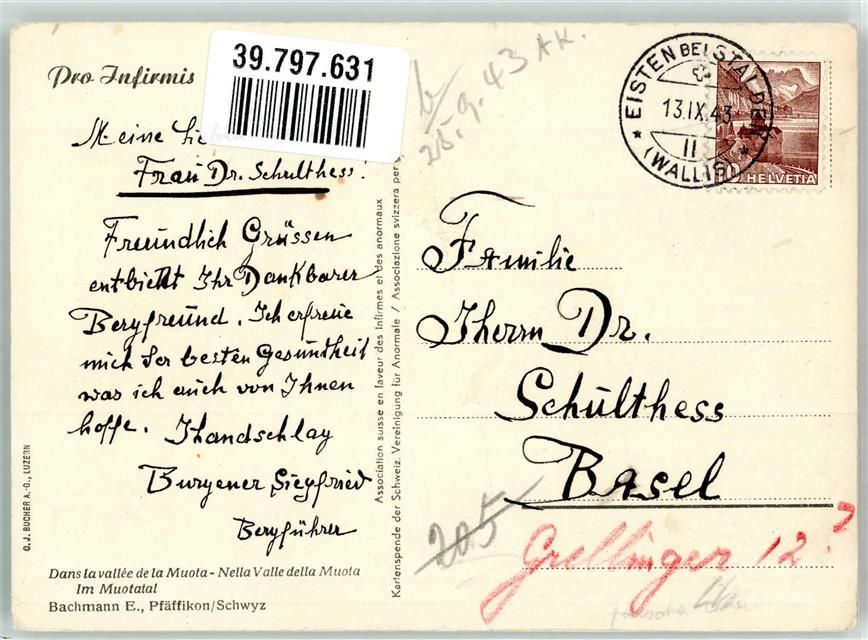 39.797.631
Pro Infirmis
Meine
Frau Dr. Schulthess!
Freundlich Grüssen
entbietet Ihr Dankbarer
Bergfreund. Ich erfreue
mich der besten Gesundheit
was ich auch von Ihnen
hoffe. Ihandschlag
Burgener Siegfried
Bergführer
Dans la vallée de la Muota - Nella Valle della Muota
Im Muotatal
Bachmann E., Pfäffikon/Schwyz
C. J. BUCHER A.-G., LUZERN
Association suisse en faveur des Infirmes et des anormaux
Kartenspende der Schweiz. Vereinigung für Anormale / Associazione svizzera per
25.9.43 AK.
EISTEN BEI STALDEN
13.IX.43
11
(WALLIS)
HELVETIA
Familie
Iherrn Dr.
Schulthess
Basel
205
Grellinger 12?